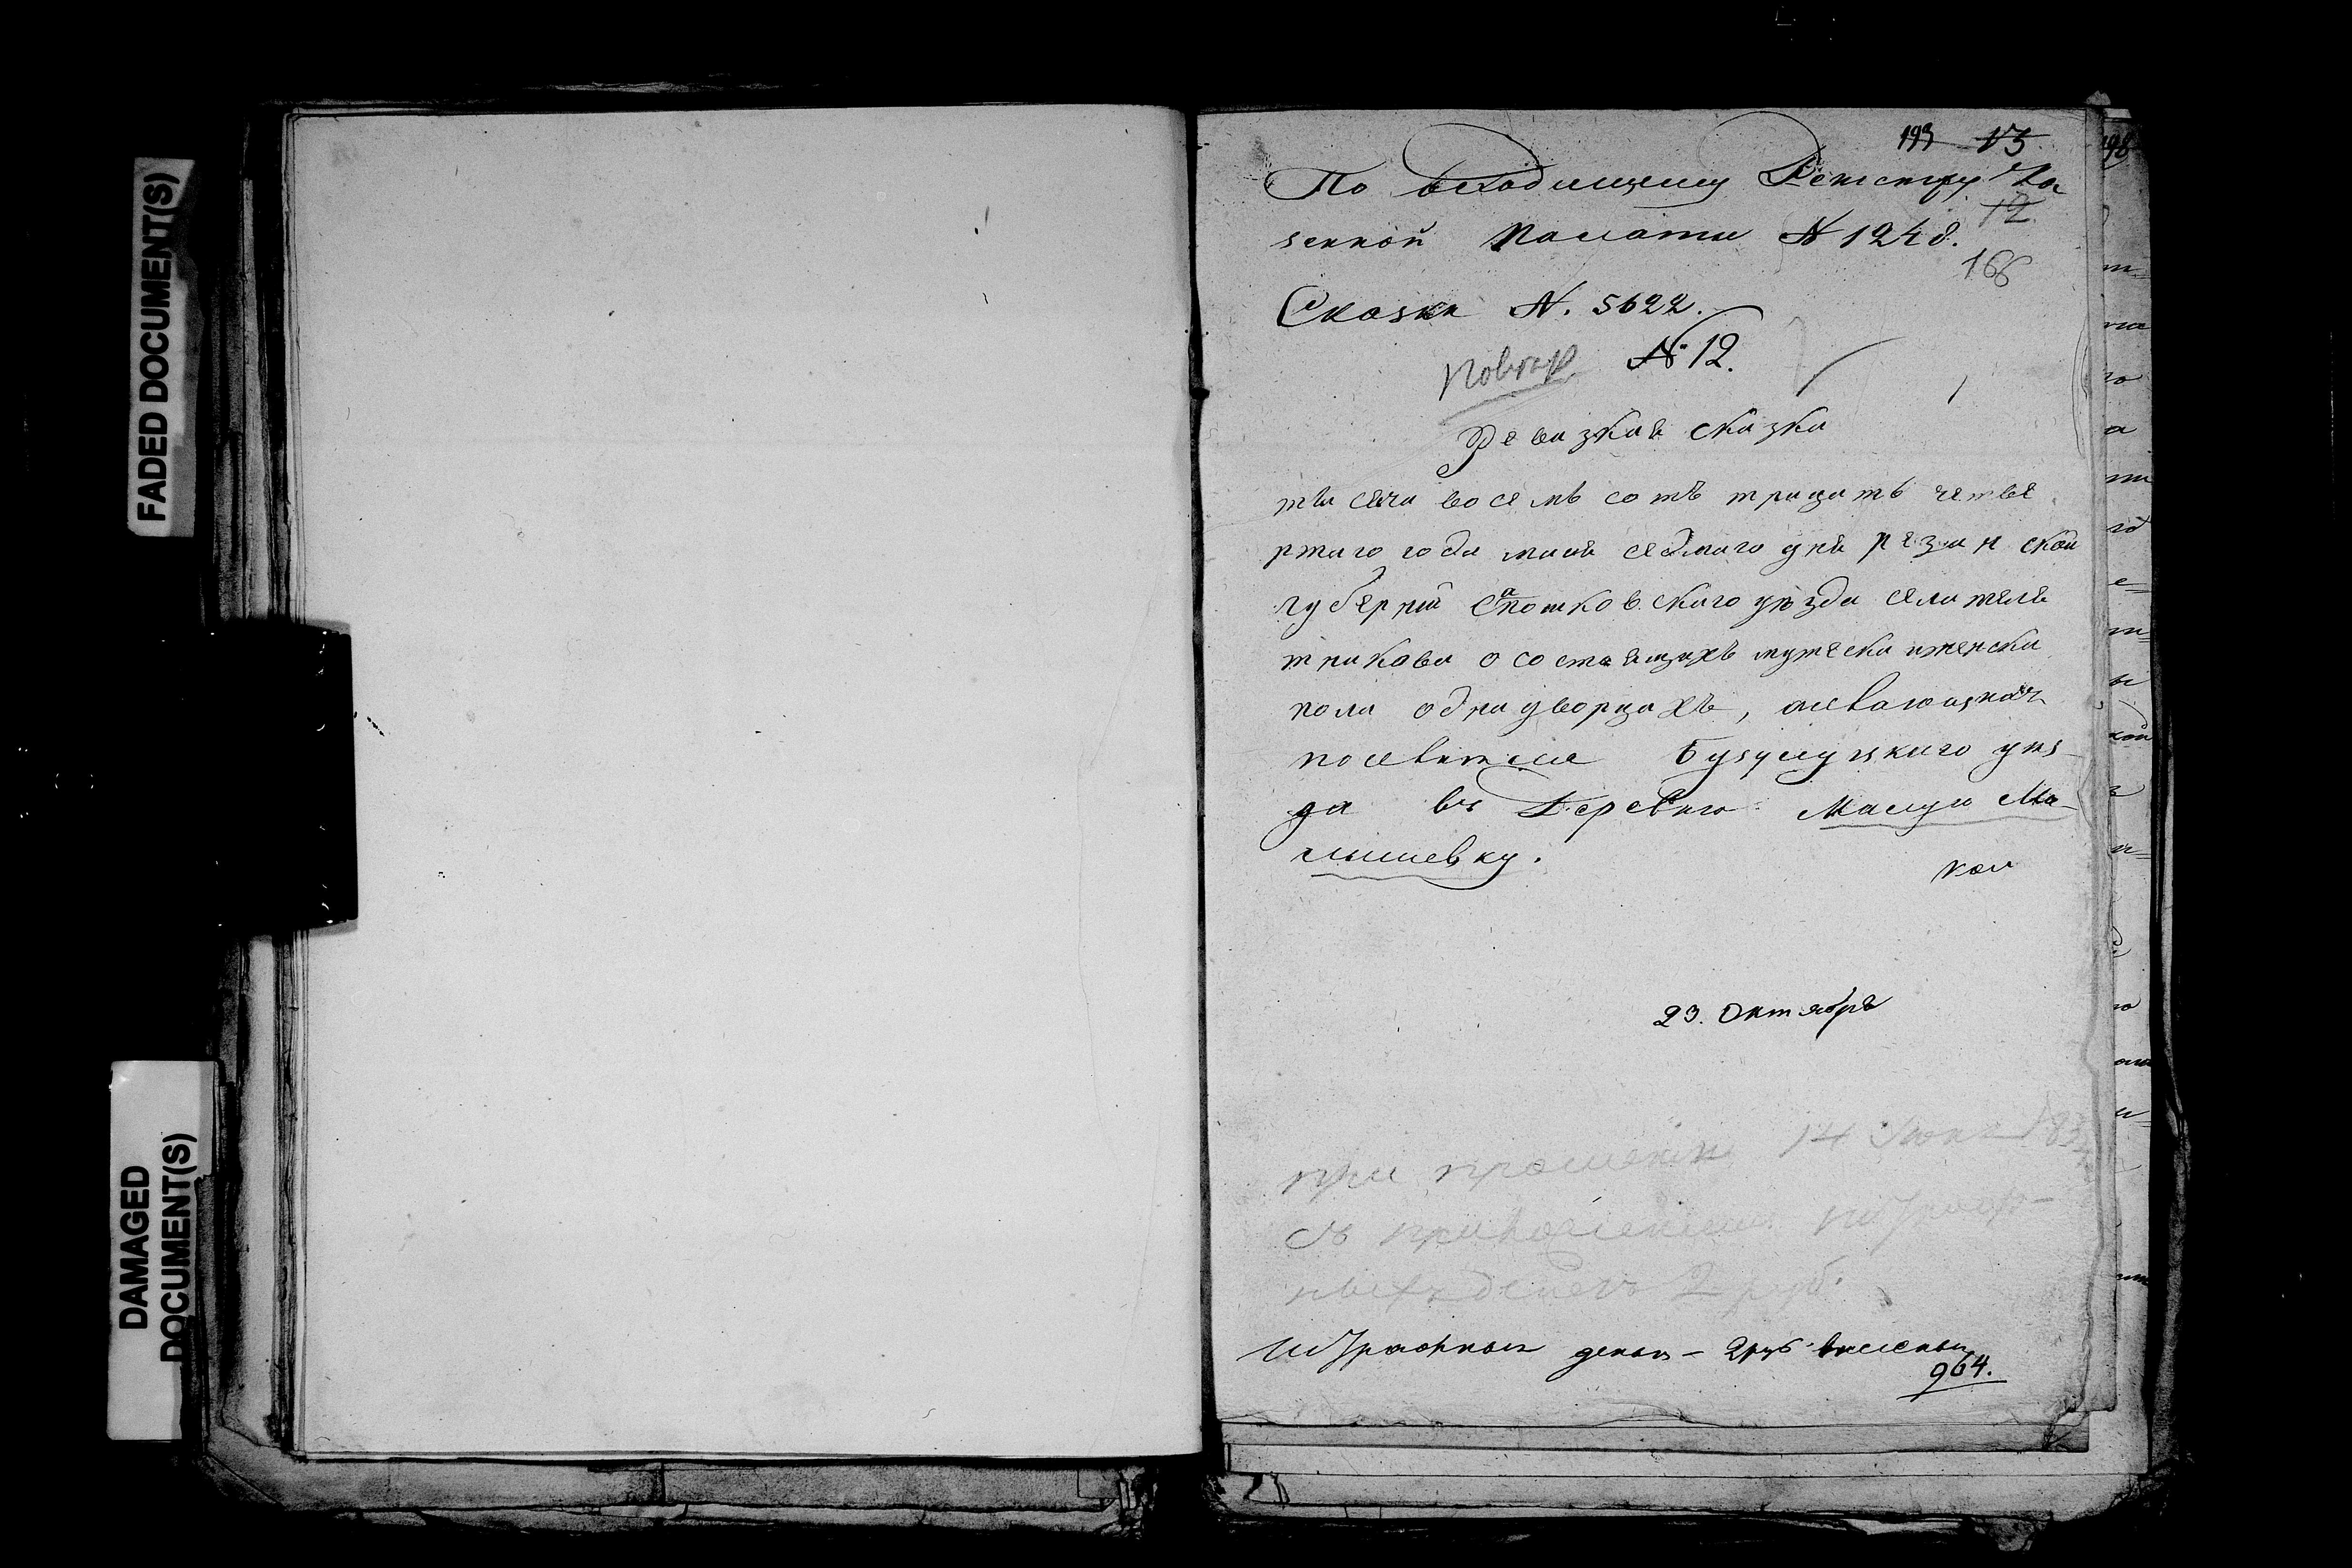 FADED DOCUMENT(S)
DAMAGED
DOCUMENT(S)
193 13
По входящему Регистру Ка
12
зенной Палаты № 1248.
166
Сказка №. 5622.
повтор № 12.
Ревизкая сказка
тысяча восемь сотъ трицать четве
ртаго года маия седмаго дня резанской
губерній сапошковскаго уезда села желе
тникова о состаящихъ мужеска иженска
пола однадворцахъ,
Бузулуцкаго уез-
да въ Деревню Малую Ма-
лышевку.
коп
23. Октября
при прошении 14 Июня 183
съ приложениемъ штраф-
ныхъ денегъ 2 руб.
Штрафныхъ денегъ - 2 руб внесены
964.